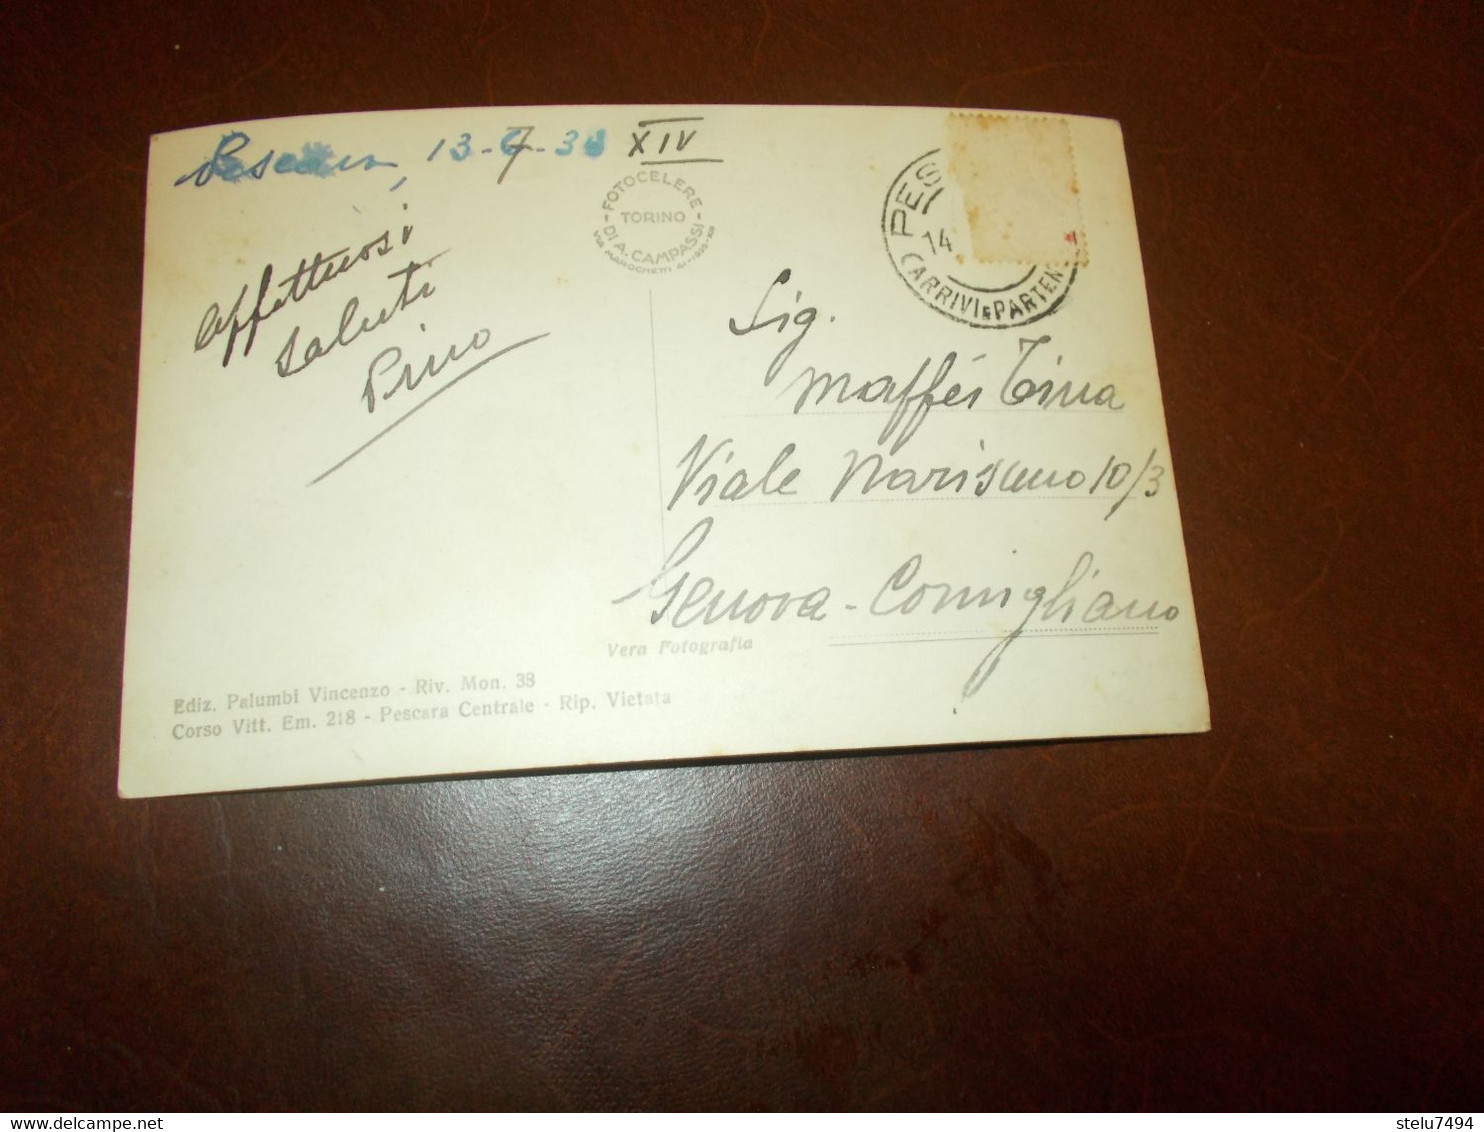 Pescara, 13-7-36 XIV
FOTOCELERE
TORINO
DI A. CAMPASSI
VIA MAROCHETTI 41-1935-XIII
PES
14
(ARRIVI E PARTEN
Affettuosi
saluti
Pino
Sig.
Maffei Tina
Viale Narisano 10/3
Genova-Cornigliano
Vera Fotografia
Ediz. Palumbi Vincenzo - Riv. Mon. 38
Corso Vitt. Em. 218 - Pescara Centrale - Rip. Vietata
stelu7494